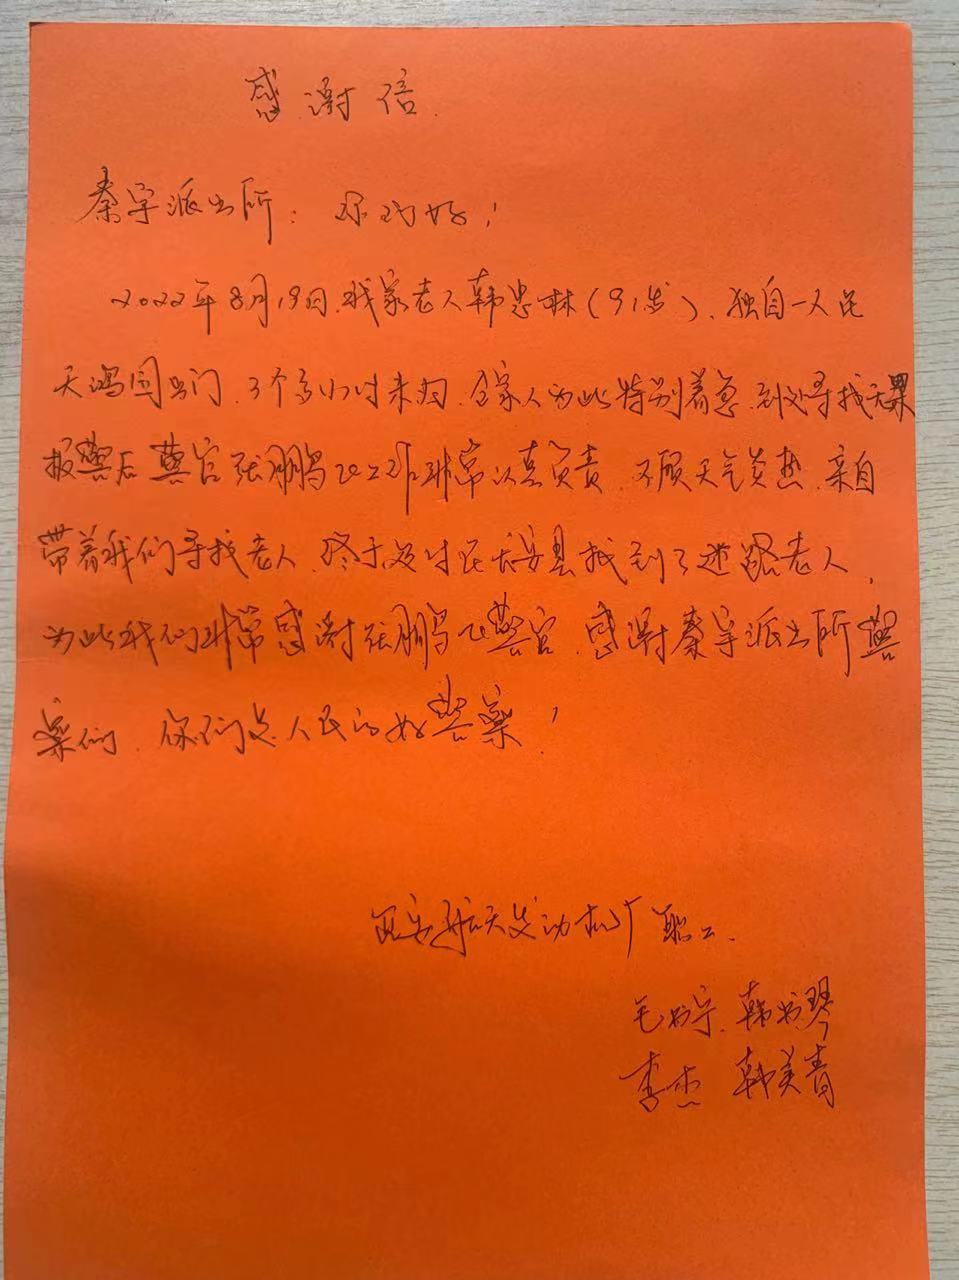 感谢信
秦宇派出所：你们好！
2022年8月19日，我家老人韩忠林（91岁），独自一人在
天鸿园出门，3个多小时未归，全家人为此特别着急，到处寻找无果
报警后警官张鹏飞工作非常认真负责，不顾天气炎热，亲自
带着我们寻找老人，终于及时在长安县找到了迷路老人，
为此我们非常感谢张鹏飞警官，感谢秦宇派出所警
察们，你们是人民的好警察！
西安航天发动机厂职工
毛书宁、韩书琴
李杰 韩美青